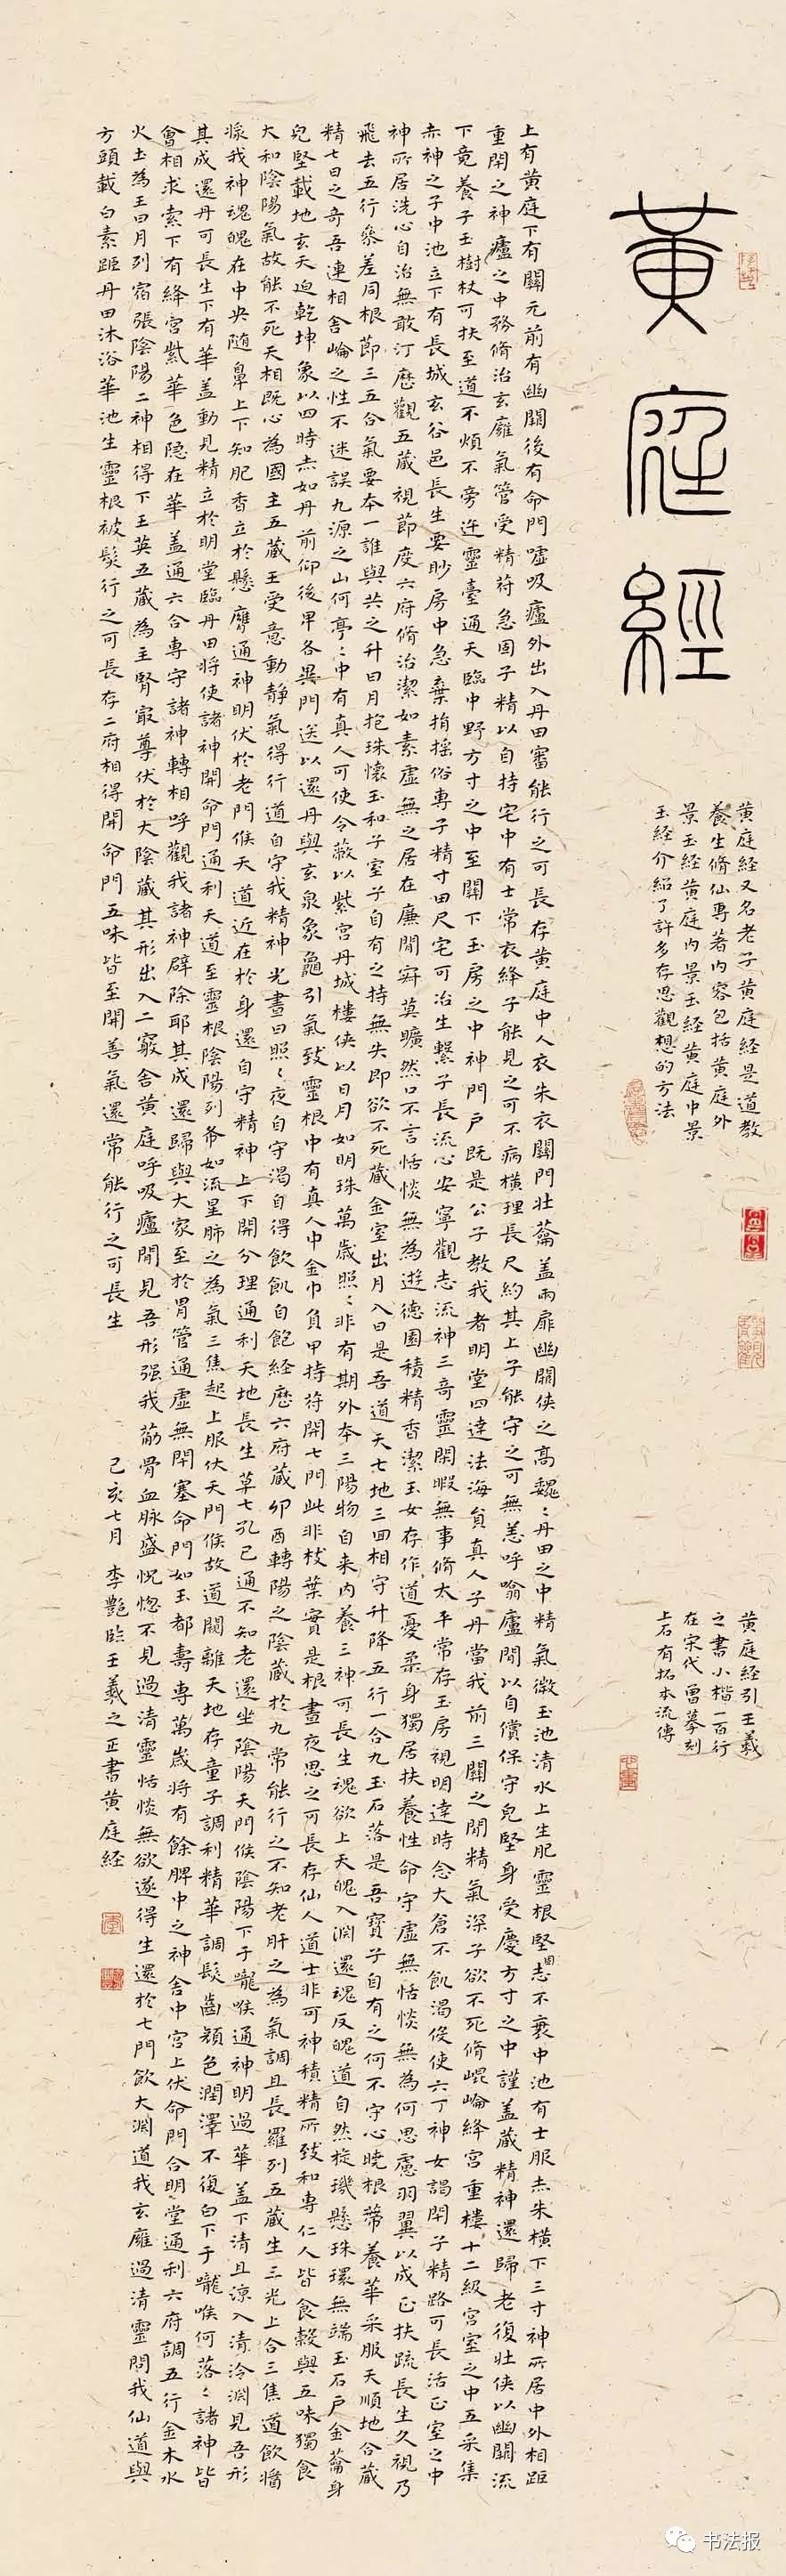 黃庭經
黄庭経又名老子黄庭経是道教
養生脩仙專著内容包括黄庭外
景玉経黄庭内景玉経黄庭中景
玉経介紹了許多存思觀想的方法
黄庭経引王羲
之書小楷一百行
在宋代曾摹刻
上石有拓本流傳
上有黄庭下有關元前有幽闕後有命門噓吸廬外出入丹田審能行之可長存黄庭中人衣朱衣關門壯蘥盖兩扉幽闕侠之高魏〻丹田之中精氣微玉池清水上生肥靈根堅固志不衰中池有士服赤朱横下三寸神所居中外相距
重閉之神廬之中務脩治玄廱氣管受精符急固子精以自持宅中有士常衣絳子能見之可不病横理長尺約其上子能守之可無恙呼噏廬間以自償保守皃堅身受慶方寸之中謹盖藏精神還歸老復壯侠以幽闕流
下竟養子玉樹杖可扶至道不煩不旁迕靈臺通天臨中野方寸之中至關下玉房之中神門戶既是公子教我者明堂四達法海貟真人子丹當我前三關之間精氣深子欲不死脩崐崘絳宮重樓十二級宮室之中五采集
赤神之子中池立下有長城玄谷邑長生要眇房中急棄捐摇俗專子精寸田尺宅可治生繫子長流心安寧觀志流神三奇靈閑暇無事脩太平常存玉房視明達時念大倉不飢渴役使六丁神女謁閉子精路可長活正室之中
神所居洗心自治無敢汙歷觀五藏視節度六府脩治潔如素虛無之居在廉間寂莫曠然口不言恬惔無為遊德園積精香潔玉女存作道憂柔身獨居扶養性命守虛無恬惔無為何思慮羽翼以成正扶疏長生久視乃
飛去五行參差同根節三五合氣要本一誰與共之升日月抱珠懷玉和子室子自有之持無失即欲不死藏金室出月入日是吾道天七地三回相守升降五行一合九玉石落是吾寶子自有之何不守心曉根蒂養華采服天順地合藏
精七日之奇吾連相舍崘之性不迷誤九源之山何亭〻中有真人可使令蔽以紫宮丹城樓侠以日月如明珠萬歲照〻非有期外本三陽物自来内養三神可長生魂欲上天魄入淵還魂反魄道自然琁璣懸珠環無端玉石戶金蘥身
皃堅載地玄天迫乾坤象以四時赤如丹前仰後卑各異門送以還丹與玄泉象龜引氣致靈根中有真人巾金巾負甲持符開七門此非枝葉實是根晝夜思之可長存仙人道士非可神積精所致和專仁人皆食穀與五味獨食
大和陰陽氣故能不死天相既心為國主五藏王受意動静氣得行道自守我精神光晝日照〻夜自守渴自得飲飢自飽経歷六府藏卯酉轉陽之陰藏於九常能行之不知老肝之為氣調且長羅列五藏生三光上合三焦道飲醬
我神魂魄在中央随鼻上下知肥香立於懸膺通神明伏於老門候天道近在於身還自守精神上下開分理通利天地長生草七孔已通不知老還坐陰陽天門候陰陽下于嚨喉通神明過華盖下清且凉入清泠淵見吾形
其成還丹可長生下有華盖動見精立於明堂臨丹田将使諸神開命門通利天道至靈根陰陽列布如流星肺之為氣三焦起上服伏天門候故道闚離天地存童子調利精華調髮齒顏色潤澤不復白下于嚨喉何落〻諸神皆
會相求索下有絳宮紫華色隐在華盖通六合專守諸神轉相呼觀我諸神辟除耶其成還歸與大家至於胃管通虛無閉塞命門如玉都壽專萬歲将有餘脾中之神舍中宮上伏命門合明堂通利六府調五行金木水
火土為王日月列宿張陰陽二神相得下玉英五藏為主腎㝡尊伏於大陰藏其形出入二竅舍黄庭呼吸廬間見吾形强我筋骨血脉盛怳惚不見過清靈恬惔無欲遂得生還於七門飲大淵道我玄廱過清靈問我仙道與
方頭載白素距丹田沐浴華池生靈根被髮行之可長存二府相得開命門五味皆至開善氣還常能行之可長生 己亥七月 李艷臨王羲之正書黄庭経
书法报